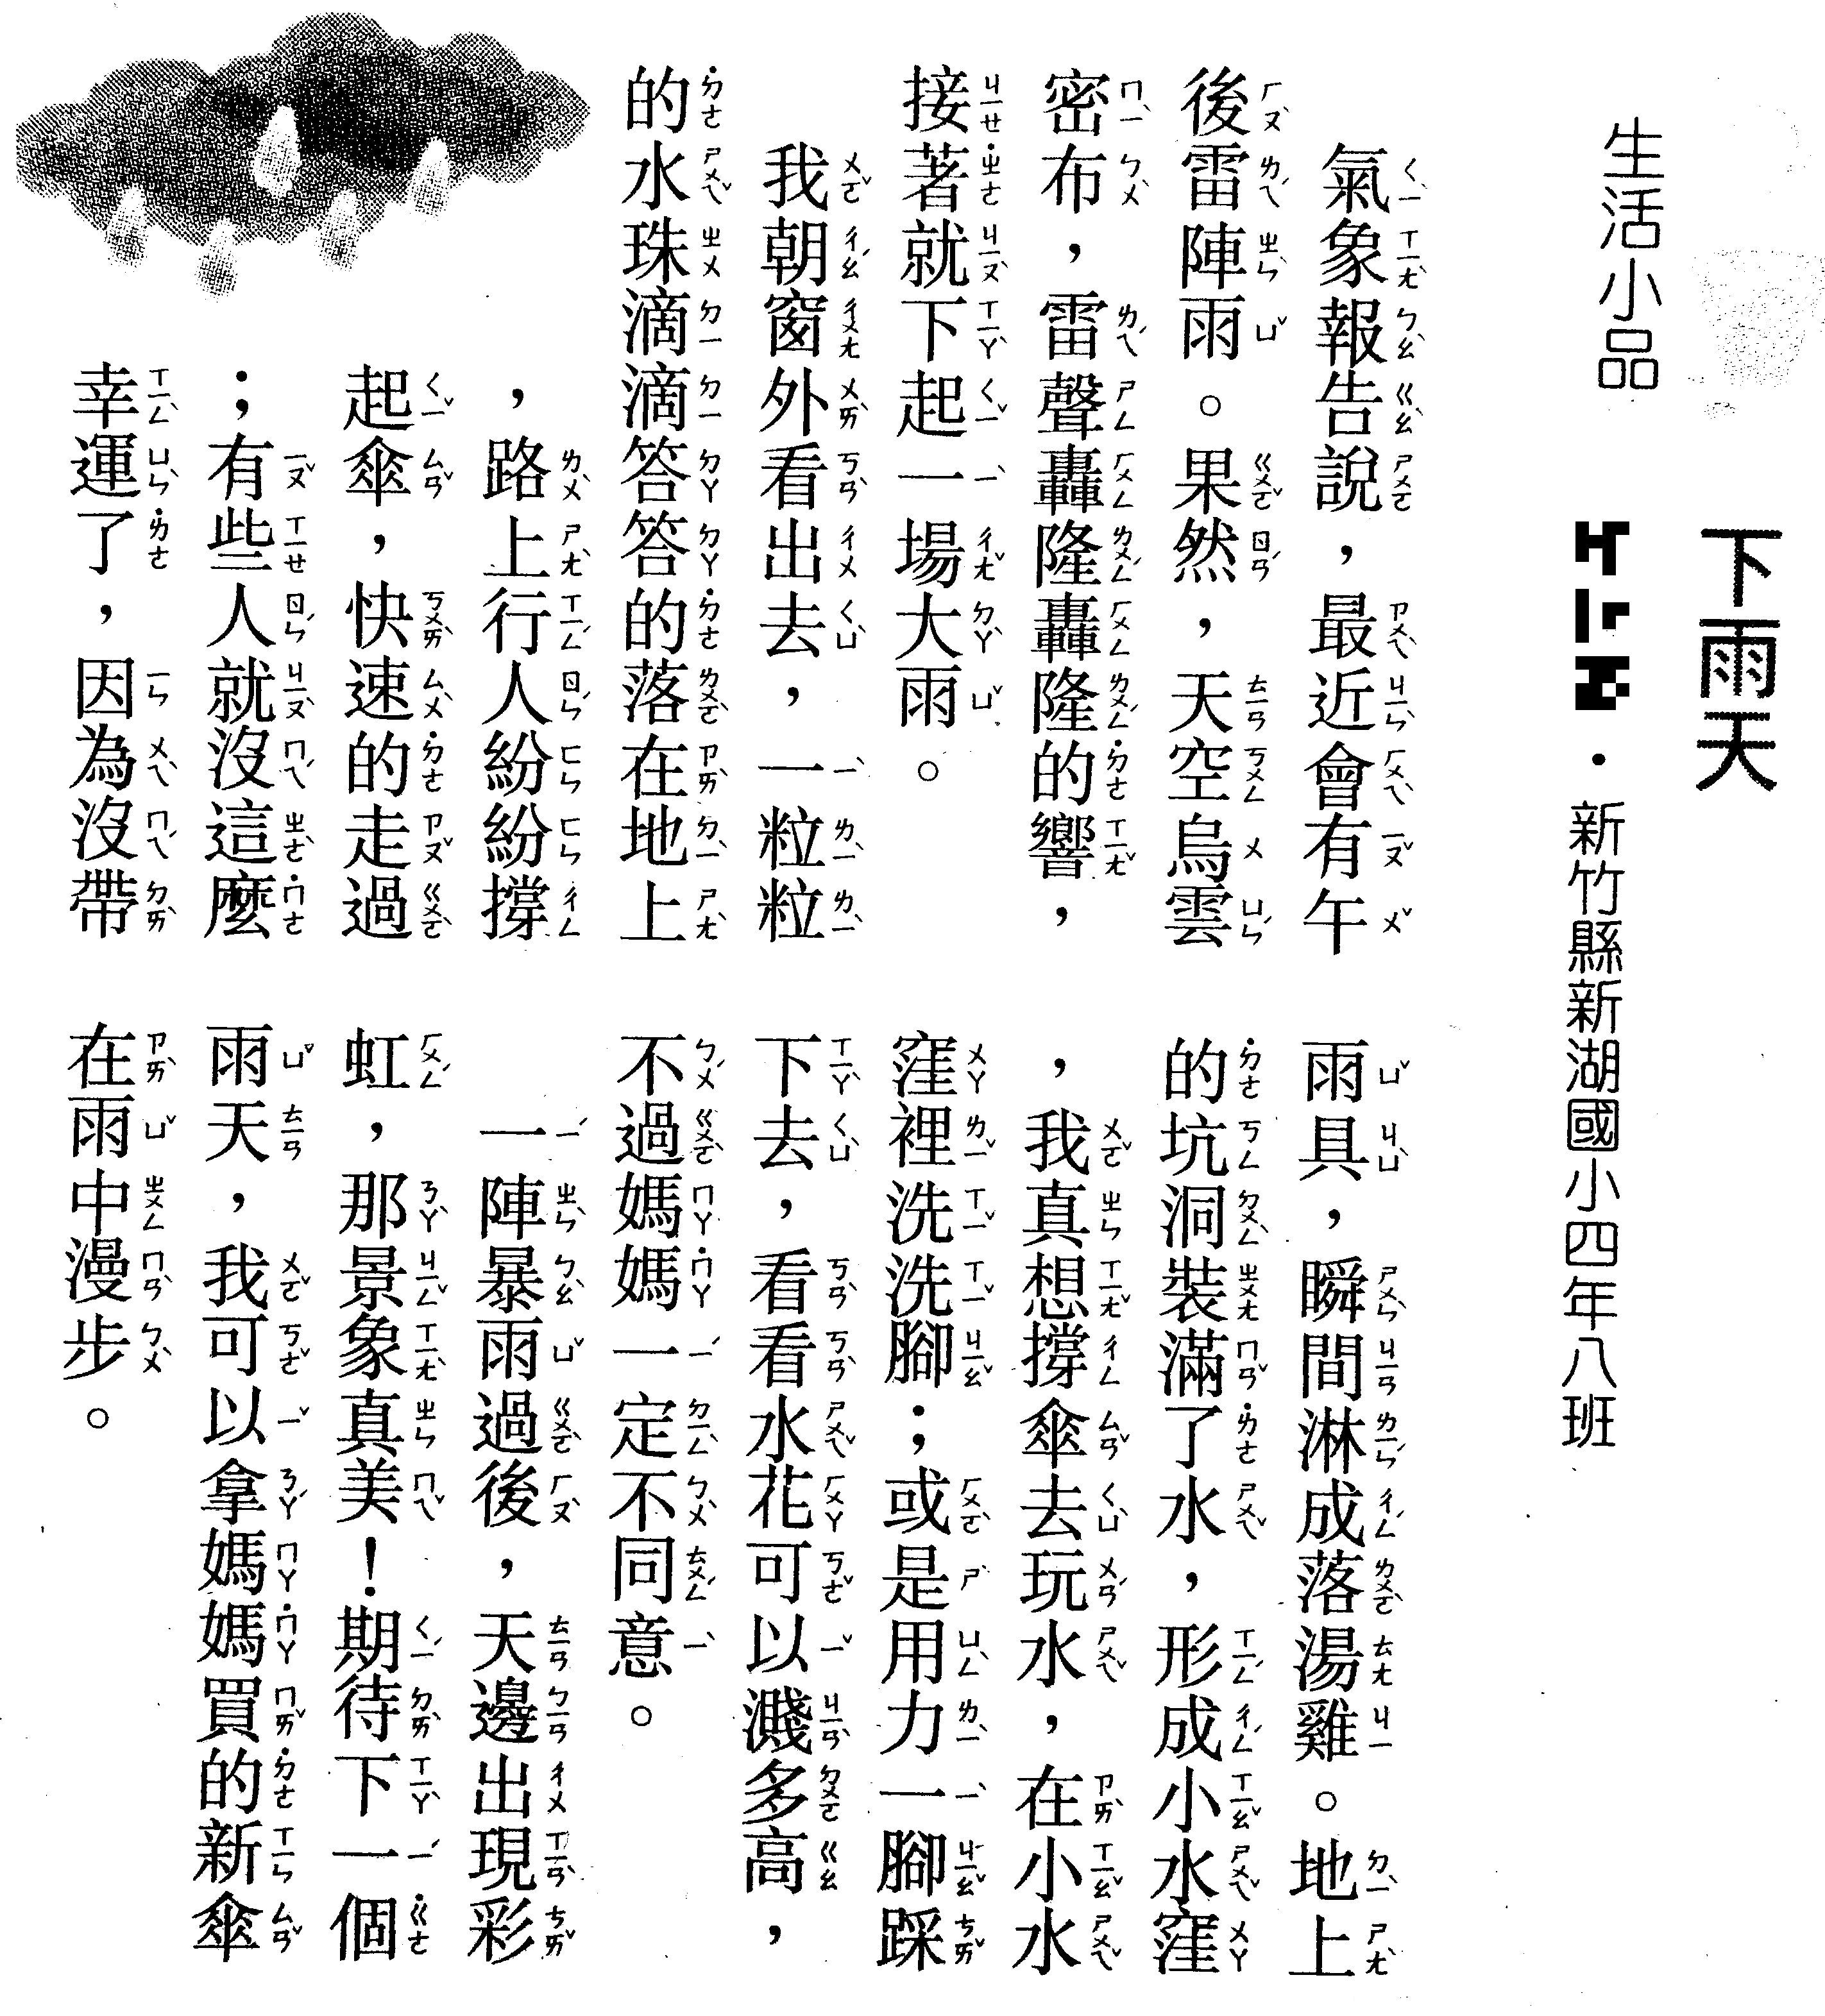 生活小品
下雨天
・新竹縣新湖國小四年八班
氣象報告說，最近會有午
後雷陣雨。果然，天空烏雲
密布，雷聲轟隆轟隆的響，
接著就下起一場大雨。
我朝窗外看出去，一粒粒
的水珠滴滴答答的落在地上
，路上行人紛紛撐
起傘，快速的走過
；有些人就沒這麼
幸運了，因為沒帶
雨具，瞬間淋成落湯雞。地上
的坑洞裝滿了水，形成小水窪
，我真想撐傘去玩水，在小水
窪裡洗洗腳；或是用力一腳踩
下去，看看水花可以濺多高，
不過媽媽一定不同意。
一陣暴雨過後，天邊出現彩
虹，那景象真美！期待下一個
雨天，我可以拿媽媽買的新傘
在雨中漫步。